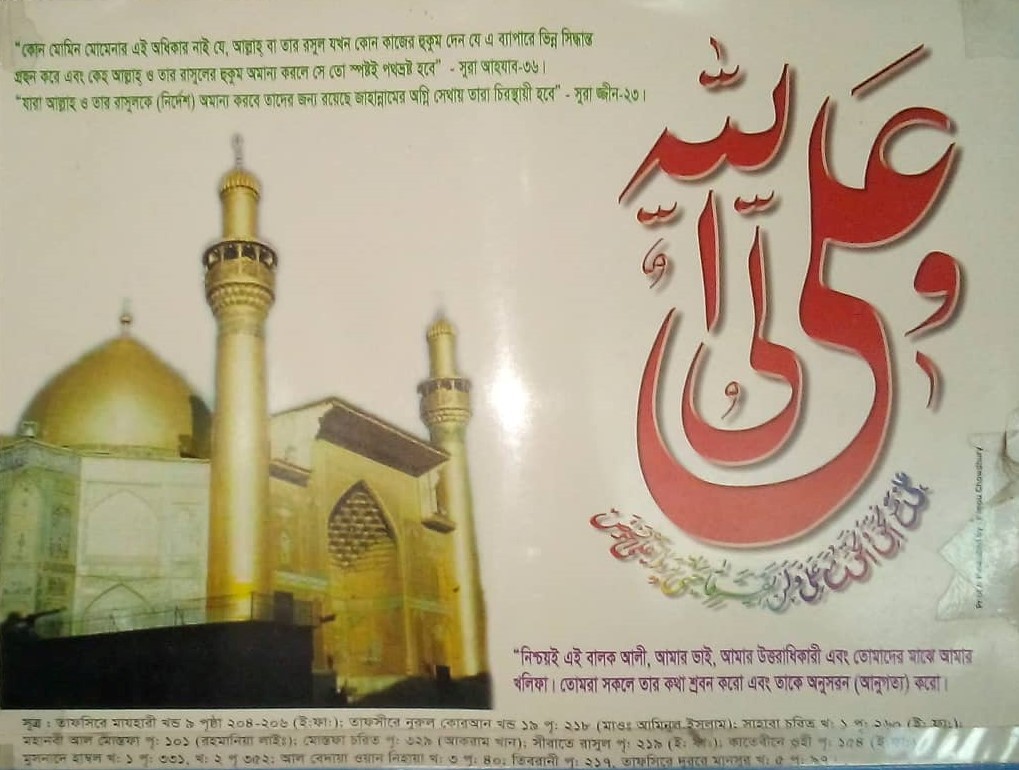 “কোন মোমিন মোমেনার এই অধিকার নাই যে, আল্লাহ্ বা তার রসূল যখন কোন কাজের হুকুম দেন যে এ ব্যাপারে ভিন্ন সিদ্ধান্ত
গ্রহন করে এবং কেহ আল্লাহ্ ও তার রাসুলের হুকুম অমান্য করলে সে তো স্পষ্টই পথভ্রষ্ট হবে” - সুরা আহযাব-৩৬।
“যারা আল্লাহ্ ও তার রাসুলকে (নির্দেশ) অমান্য করবে তাদের জন্য রয়েছে জাহান্নামের অগ্নি সেথায় তারা চিরস্থায়ী হবে” - সূরা জ্বীন-২৩।
علی ولی الله
“নিশ্চয়ই এই বালক আলী, আমার ভাই, আমার উত্তরাধিকারী এবং তোমাদের মাঝে আমার
খলিফা। তোমরা সকলে তার কথা শ্রবন করো এবং তাকে অনুসরন (আনুগত্য) করো।
সূত্র : তাফসিরে মাযহারী খন্ড ৯ পৃষ্ঠা ২০৪-২০৬ (ই:ফা:); তাফসীরে নুরুল কোরআন খন্ড ১৯ পৃ: ২১৮ (মাওঃ আমিনুল ইসলাম); সাহাবা চরিত খ: ১ পৃ: (ই: ফা:);
মহানবী আল মোস্তফা পৃ: ১০১ (রহমানিয়া লাইঃ); মোস্তফা চরিত পৃ: ৩২৯ (আকরাম খান); সীরাতে রাসুল পৃ: ২১৯ (ই: ফা:); কাতেবীনে ওহী পৃ: ১৫৪ (ই:ফা:)
মুসনাদে হাম্বল খ: ১ পৃ: ৩৩১, খ: ২ পৃ ৩৫২; আল বেদায়া ওয়ান নিহায়া খ: ৩ পৃ: ৪০; তিবরানী পৃ: ২১৭, তাফসিরে দুররে মানসুর খ: ৫ পৃ: